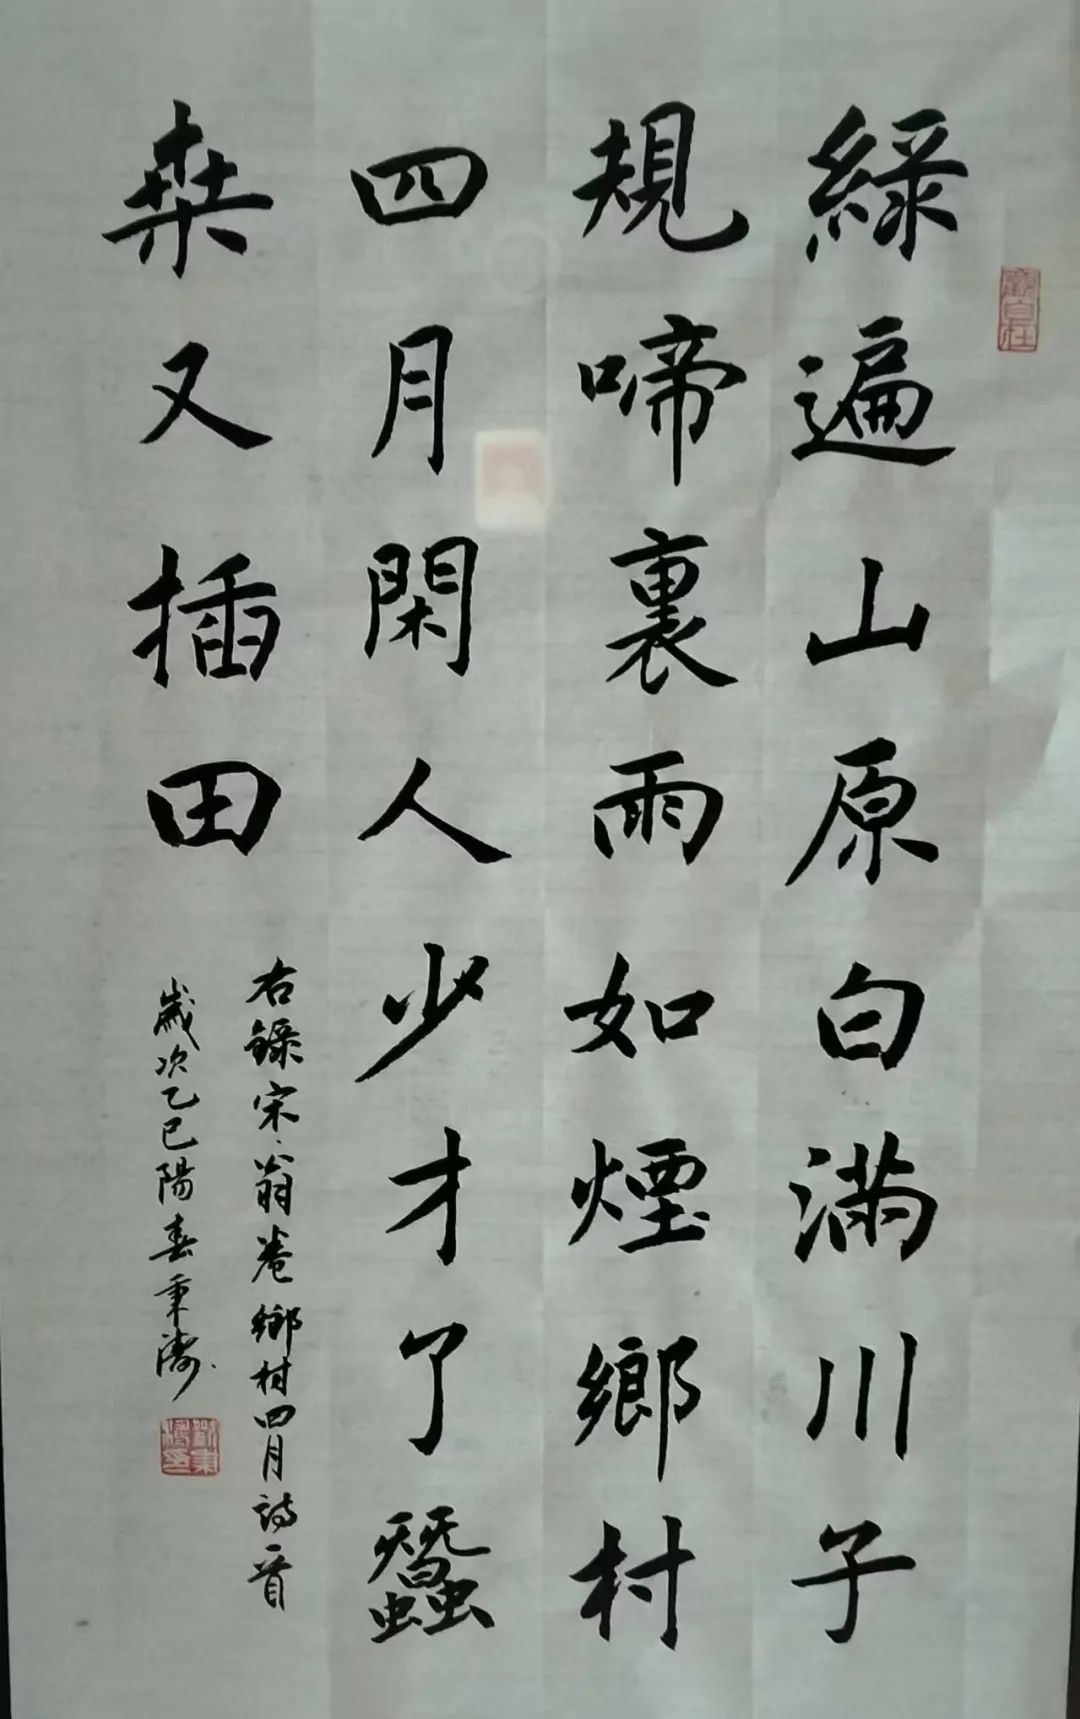 綠遍山原白滿川子
規啼裏雨如煙鄉村
四月閑人少才了蠶
桒又插田
右錄宋·翁卷鄉村四月詩一首
歲次乙巳陽春秉濤